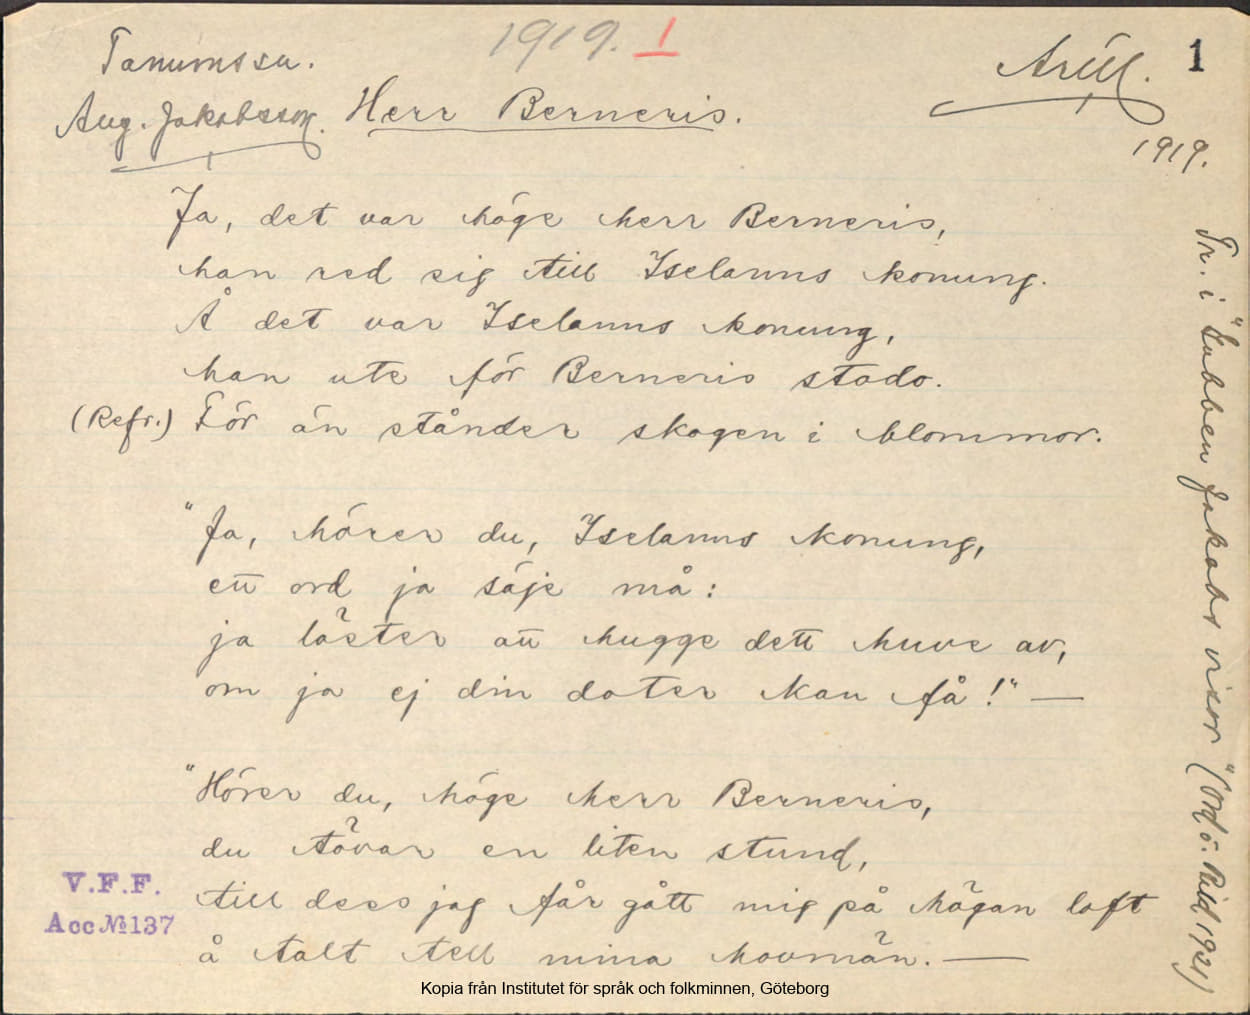 1919. 1
Tanumssn. Arill. 1
Aug. Jakobsson. Herr Berneris.
1919.
Ja, det var höge herr Berneris,
han red sig till Iselanns konung.
Å det var Iselanns konung,
han ute för Berneris stado.
(Refr.) För än stånder skogen i blommor.
"Ja, hörer du, Iselanns konung,
ett ord ja säje må:
ja läster att hugge dett huve av,
om ja ej din doter kan få!" —
"Hörer du, höge herr Berneris,
du tövar en liten stund,
till dess jag får gått mig på högan loft
å talt tell mina hovmän. —
Tr. i "Gubben Jakobs visor" (Ord ö. Bild 1921)
V.F.F.
Acc № 137
Kopia från Institutet för språk och folkminnen, Göteborg